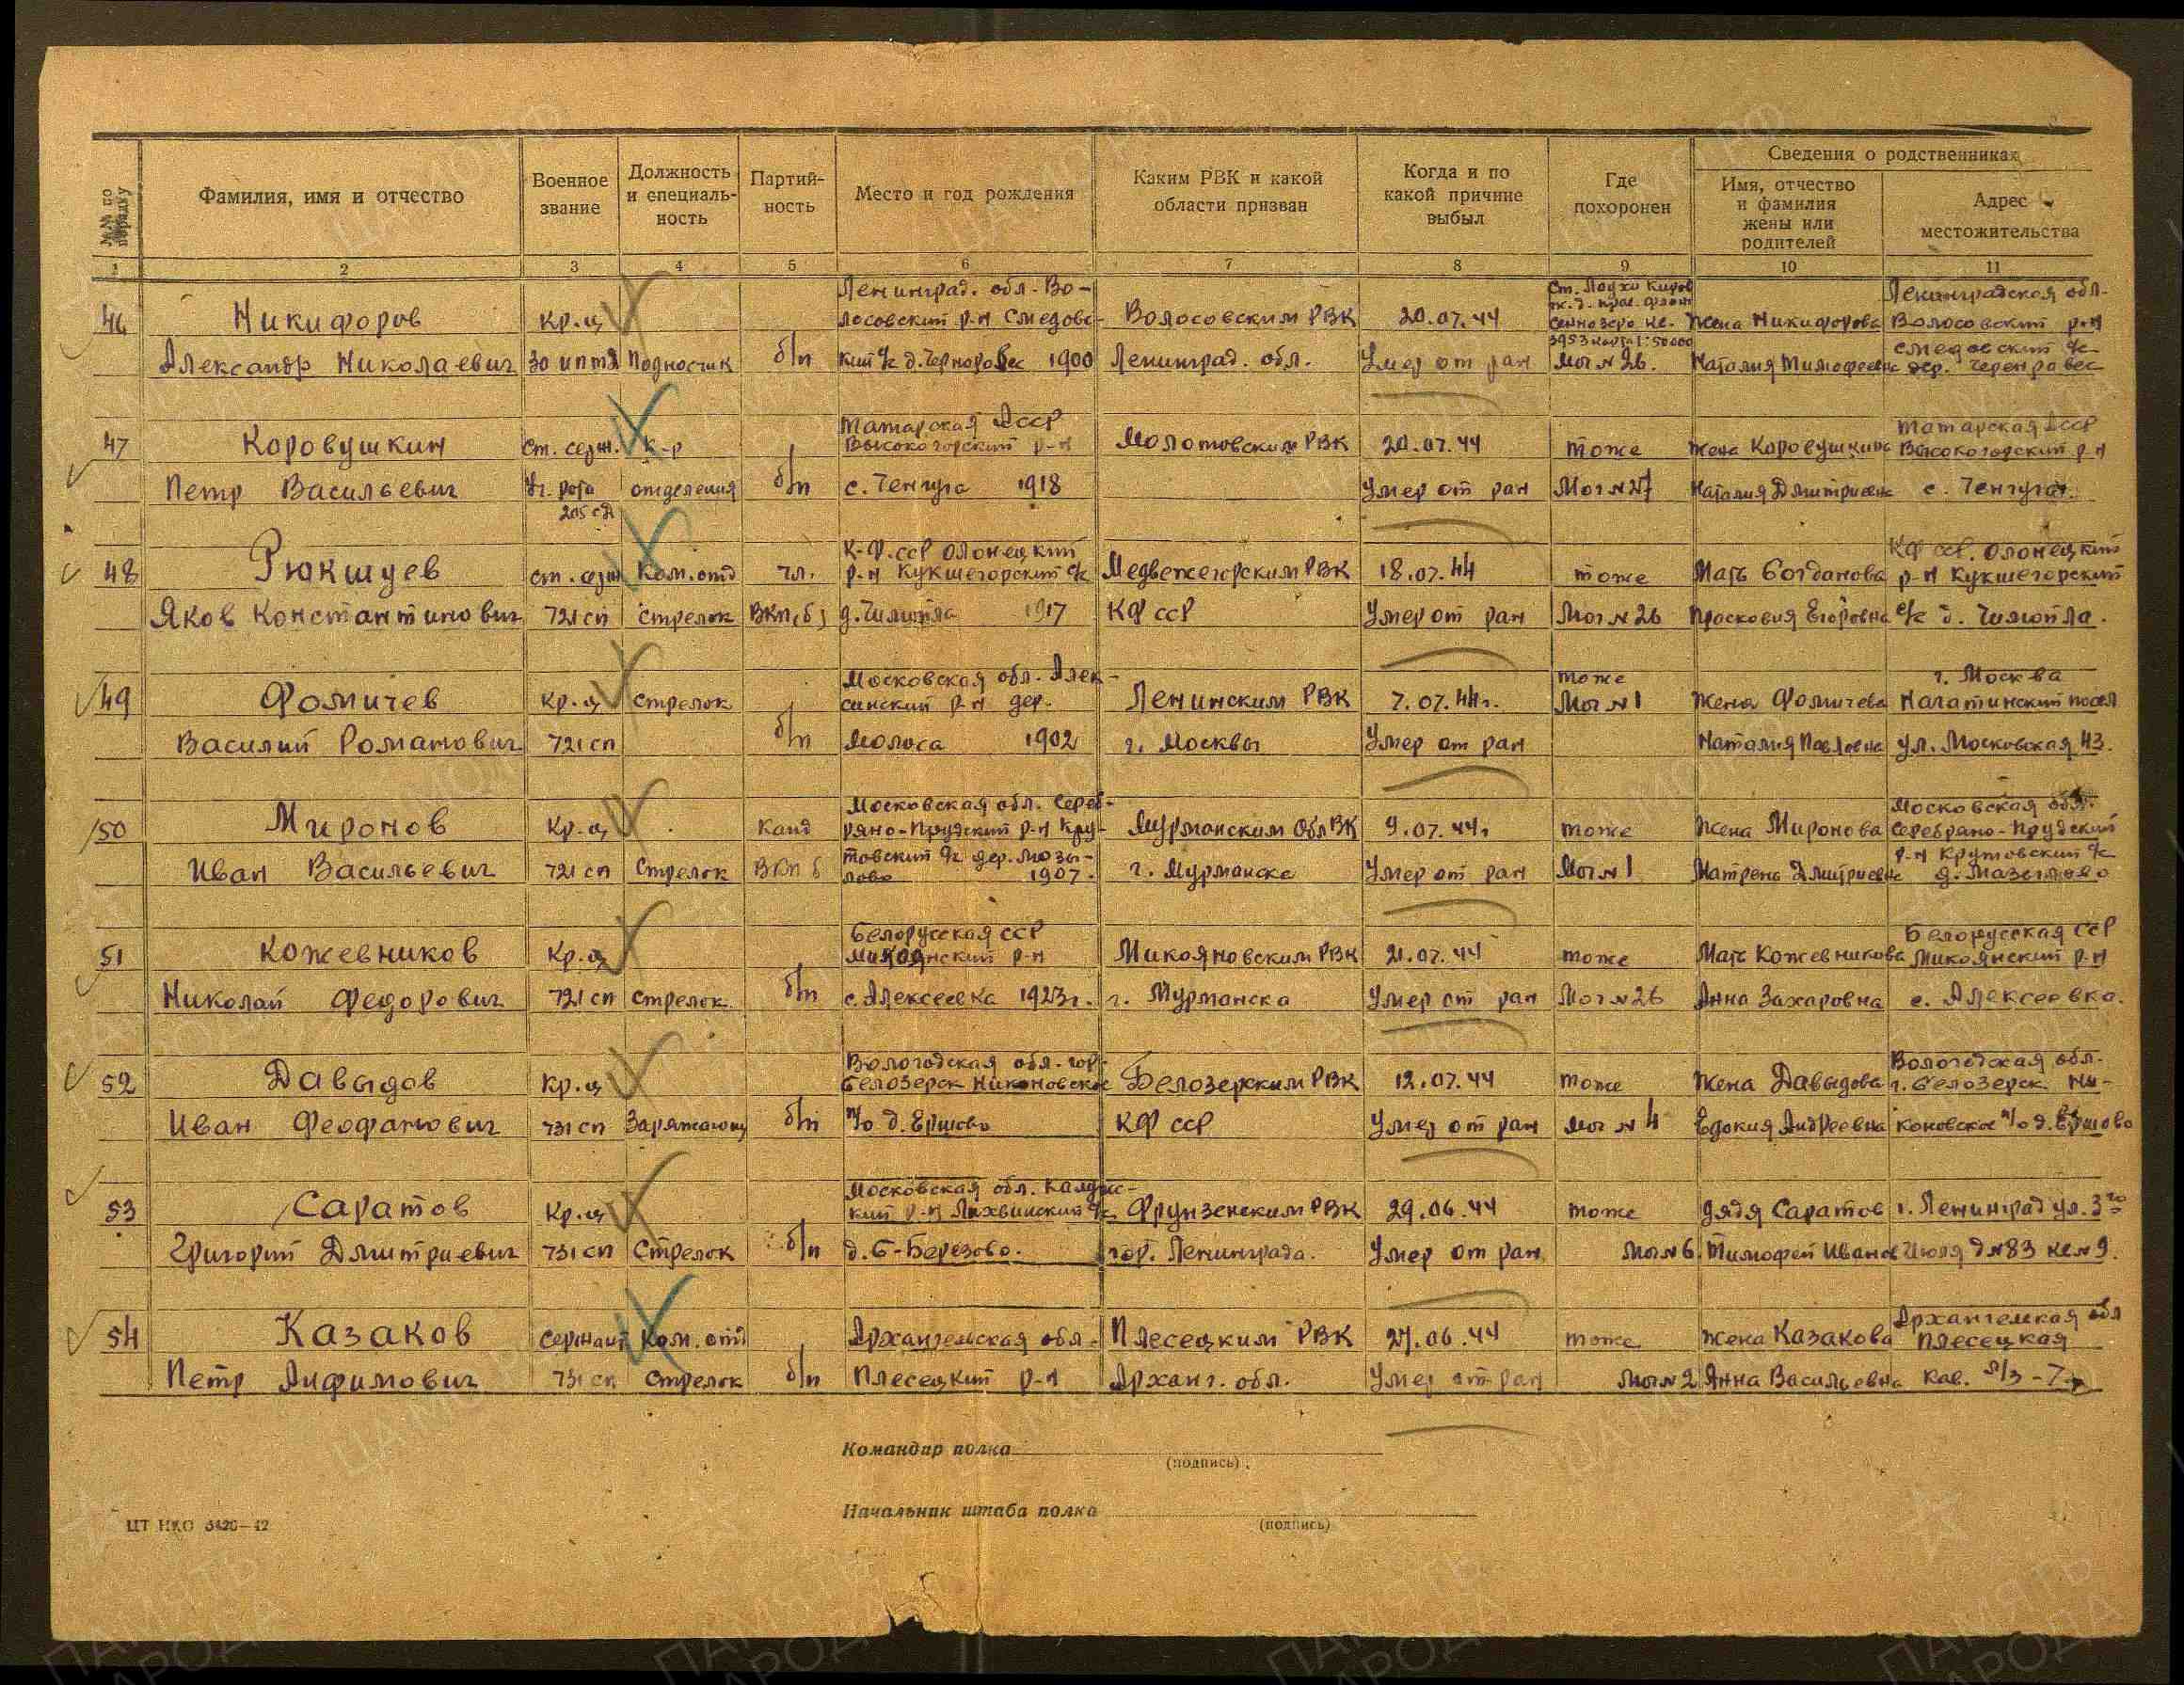 №№ по порядку
Фамилия, имя и отчество
Военное звание
Должность и специаль-ность
Партий-ность
Место и год рождения
Каким РВК и какой области призван
Когда и по какой причине выбыл
Где похоронен
Сведения о родственниках
Имя, отчество и фамилия жены или родителей
Адрес местожительства
1 2 3 4 5 6 7 8 9 10 11
Ленинград. обл. Во- Ст. Лоухи Киров Ленинградская обл.
46 Никифоров Кр.-ц лосовский р-н Смедовс- Волосовским РВК 20.07.44 Жена Никифорова Волосовский р-н
Александр Николаевич 30 иптд Подносчик б/п кий с/с д. Черноровес 1900 Ленинград. обл. Умер от ран Мог № 26. Наталия Тимофеевна дер.
Татарская АССР Татарская АССР
47 Коровушкин Ст. серж. к-р Высокогорский р-н Молотовским РВК 20.07.44 тоже Жена Коровушкина Высокогорский р-н
Петр Васильевич Уч. рота отделения б/п с. Ченгуга 1918 Умер от ран Мог № 27 Наталия Дмитриевна с. Ченгуга.
205 сд
К-Ф. ССР Олонецкий КФ ССР. Олонецкий
48 Рюкшуев ст. серж Ком. отд чл. р-н Кукшегорский с/с Медвежегорским РВК 18.07.44 тоже Мать Богданова р-н Кукшегорский
Яков Константинович 721 сп стрелок ВКП(б) д. 1917 КФ ССР Умер от ран Мог № 26 Прасковия Егоровна с/с д.
Московская обл. Алек- тоже г. Москва
49 Фомичев Кр.-ц Стрелок синский р-н дер. Ленинским РВК 7.07.44г. Мог № 1 Жена Фомичева Нагатинский посел
Василий Романович 721 сп б/п Молоса 1902 г. Москвы Умер от ран Наталия Павловна ул. Московская 43.
Московская обл. Сереб- Московская обл.
50 Миронов Кр.-ц Канд ряно-Прудский р-н Кру- Мурманским ОблВК 9.07.44г тоже Жена Миронова Серебряно-Прудский
товский с/с дер. Мозы- р-н Крутовский с/с
Иван Васильевич 721 сп Стрелок ВКП б лово 1907. г. Мурманска Умер от ран Мог № 1 Матрена Дмитриевна д. Мазылово
Белорусская ССР Белорусская ССР
51 Кожевников Кр.-ц Микоянский р-н Микояновским РВК 21.07.44 тоже Мать Кожевникова Микоянский р-н
Николай Федорович 721 сп Стрелок б/п с. Алексеевка 1923г. г. Мурманска Умер от ран Мог № 26 Анна Захаровна с. Алексеевка.
Вологодская обл. гор- Вологодская обл.
52 Давыдов Кр.-ц Белозерск Никоновское Белозерским РВК 12.07.44 тоже Жена Давыдова г. Белозерск Ни-
Иван Феофанович 731 сп Заряжающ б/п п/о д. Ершово КФ ССР Умер от ран мог № 4 Евдокия Андреевна коновское п/о д. Ершово
Московская обл. Калужс-
53 Саратов Кр.-ц кий р-н Лихвинский с/с Фрунзенским РВК 29.06.44 тоже Дядя Саратов г. Ленинград ул. 3го
Григорий Дмитриевич 731 сп Стрелок б/п д. Б-Березово. гор. Ленинграда. Умер от ран Мог № 6 Тимофей Иванов Июля д № 83 кв № 9.
Архангелская обл
54 Казаков Сержант Ком. отд Архангельская обл. Плесецким РВК 27.06.44 тоже Жена Казакова Плесецкая
Петр Анфимович 731 сп Стрелок б/п Плесецкий р-н Арханг. обл. Умер от ран Мог № 2 Анна Васильевна
Командир полка
(подпись)
Начальник штаба полка
(подпись)
ЦТ НКО 5426—42